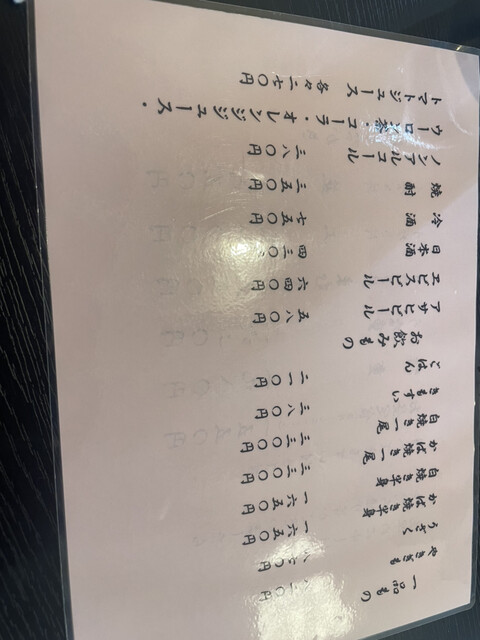 一品もの
やきぎも 八二〇円
うざく 八七〇円
かば焼き半身 一六五〇円
白焼き半身 一六五〇円
かば焼き一尾 三三〇〇円
白焼き一尾 三三〇〇円
きもすい 三八〇円
ごはん 二一〇円
お飲みもの
アサヒビール 五八〇円
ヱビスビール 六四〇円
日本酒 四三〇円
冷酒 七五〇円
焼酎 三五〇円
ノンアルコール 三八〇円
ウーロン茶・コーラ・オレンジジュース・
トマトジュース 各々二七〇円